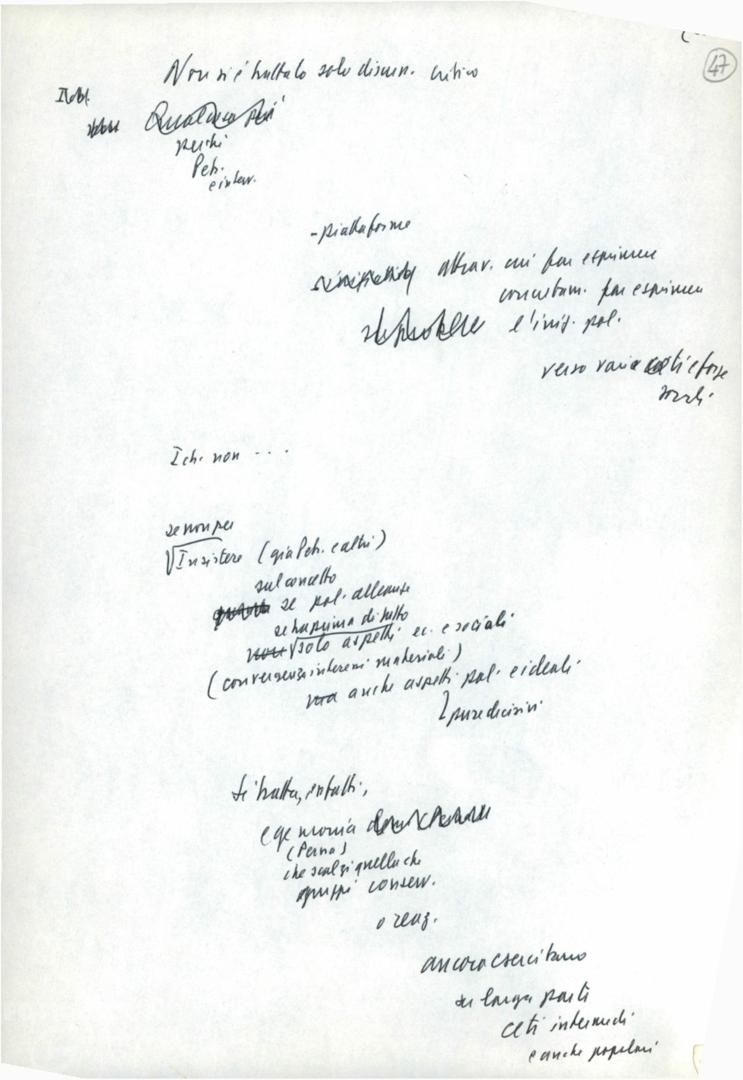 47
Non si è trattato solo discuss. critico
perché
Petr.
e interv.
- piattaforme
attrav. cui far esprimere
concretam. far esprimere
l'iniz. pol.
verso vari ceti e forze
sociali
I ch. non ...
se non per
Insistere (già Petr. e altri)
sul concetto
se pol. alleanze
se ha prima di tutto
non solo aspetti ec. e sociali
(convergenza interessi materiali)
ma anche aspetti pol. e ideali
pure decisivi
Si tratta, infatti,
egemonia
(Perna)
che scalzi quella che
gruppi conserv.
o reaz.
ancora esercitano
su larga parte
ceti intermedi
e anche popolari